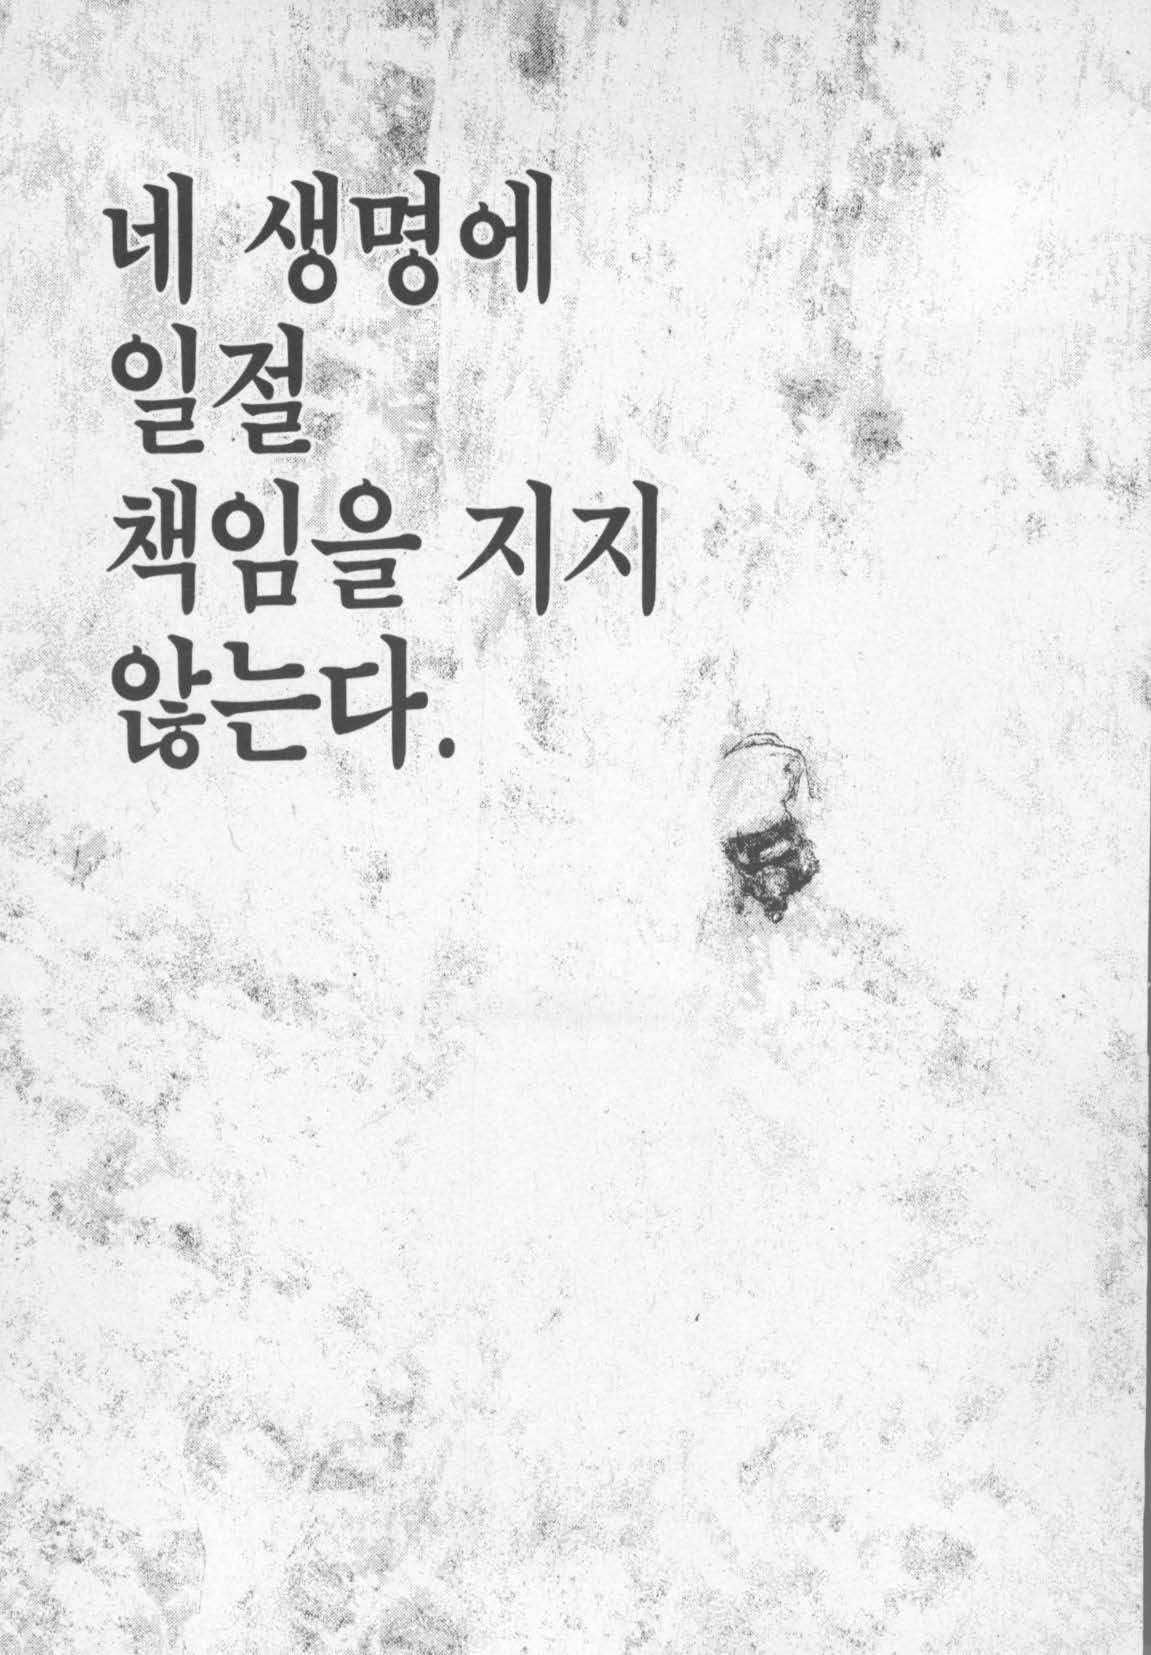 네 생명에
일절
책임을 지지
않는다.